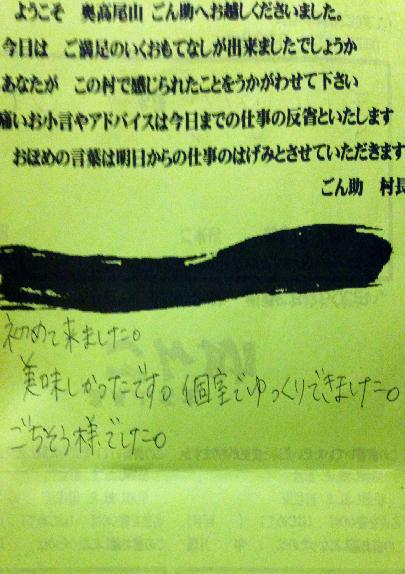 ようこそ 奥高尾山 ごん助へお越しくださいました。
今日は ご満足のいくおもてなしが出来ましたでしょうか
あなたが この村で感じられたことをうかがわせて下さい
痛いお小言やアドバイスは今日までの仕事の反省といたします
おほめの言葉は明日からの仕事のはげみとさせていただきます
ごん助 村長
初めて来ました。
美味しかったです。個室でゆっくりできました。
ごちそう様でした。